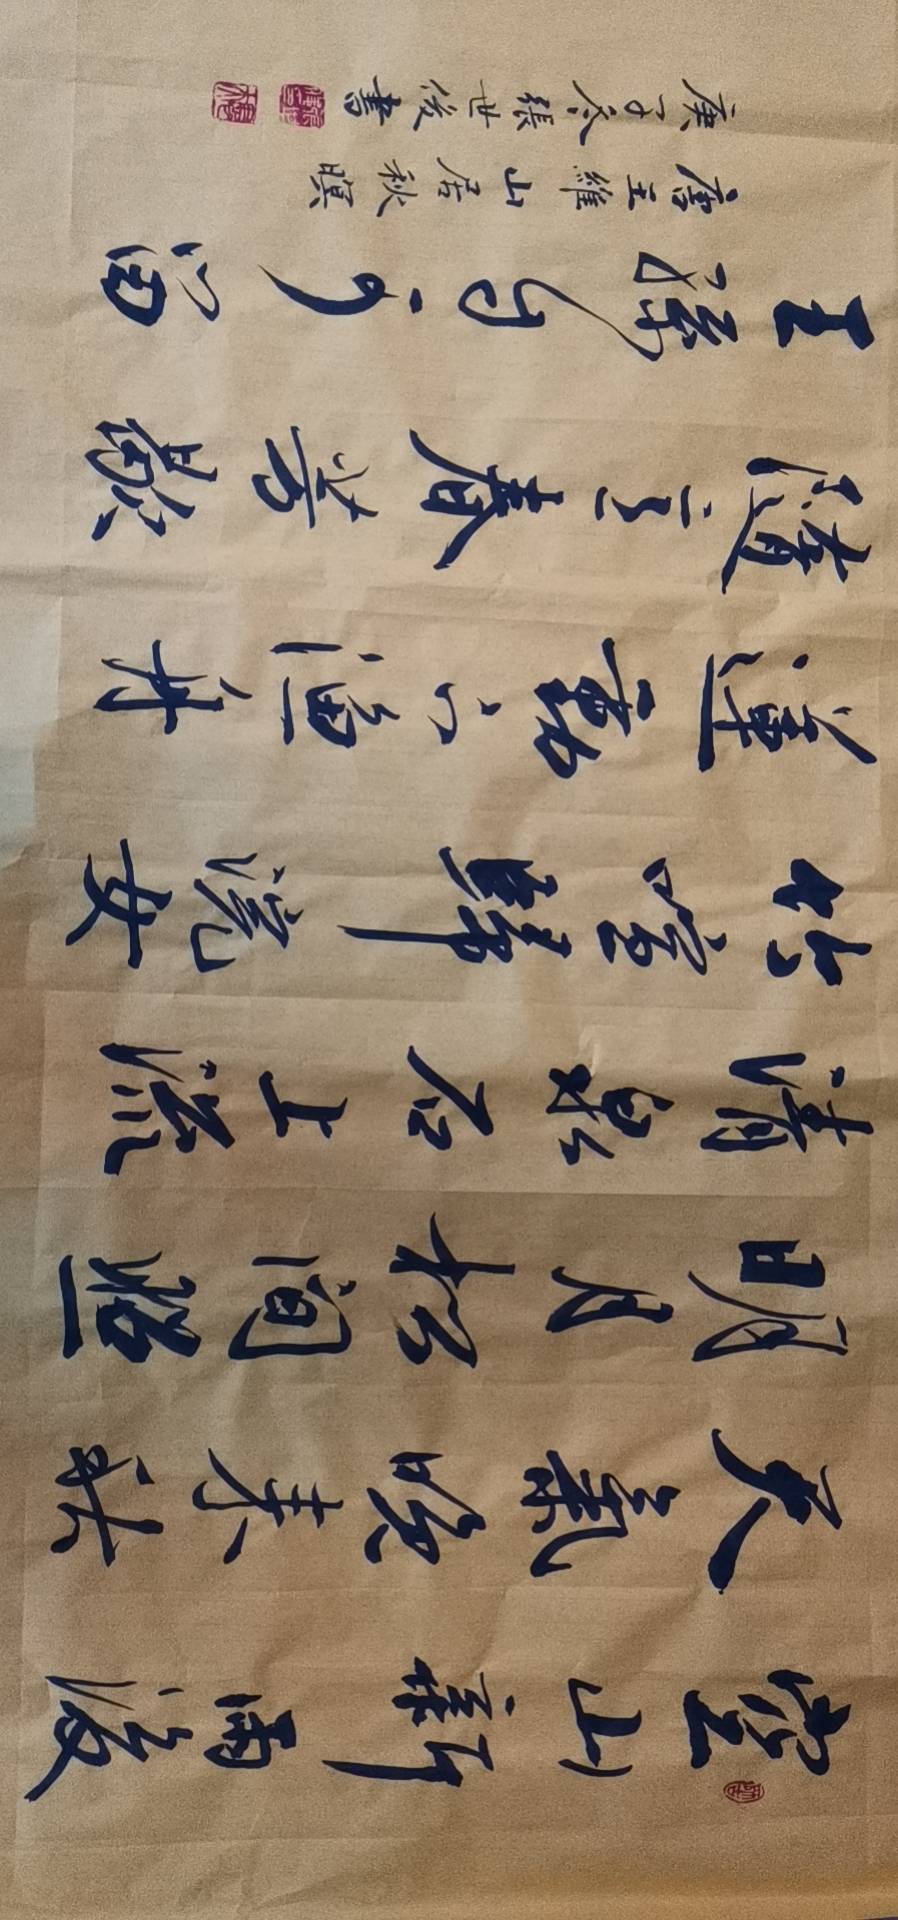 空山新雨後
天氣晚来秋
明月松间照
清泉石上流
竹喧歸浣女
蓮動下漁舟
隨意春芳歇
王孫自可留
唐王維山居秋暝
庚子冬張世俊書